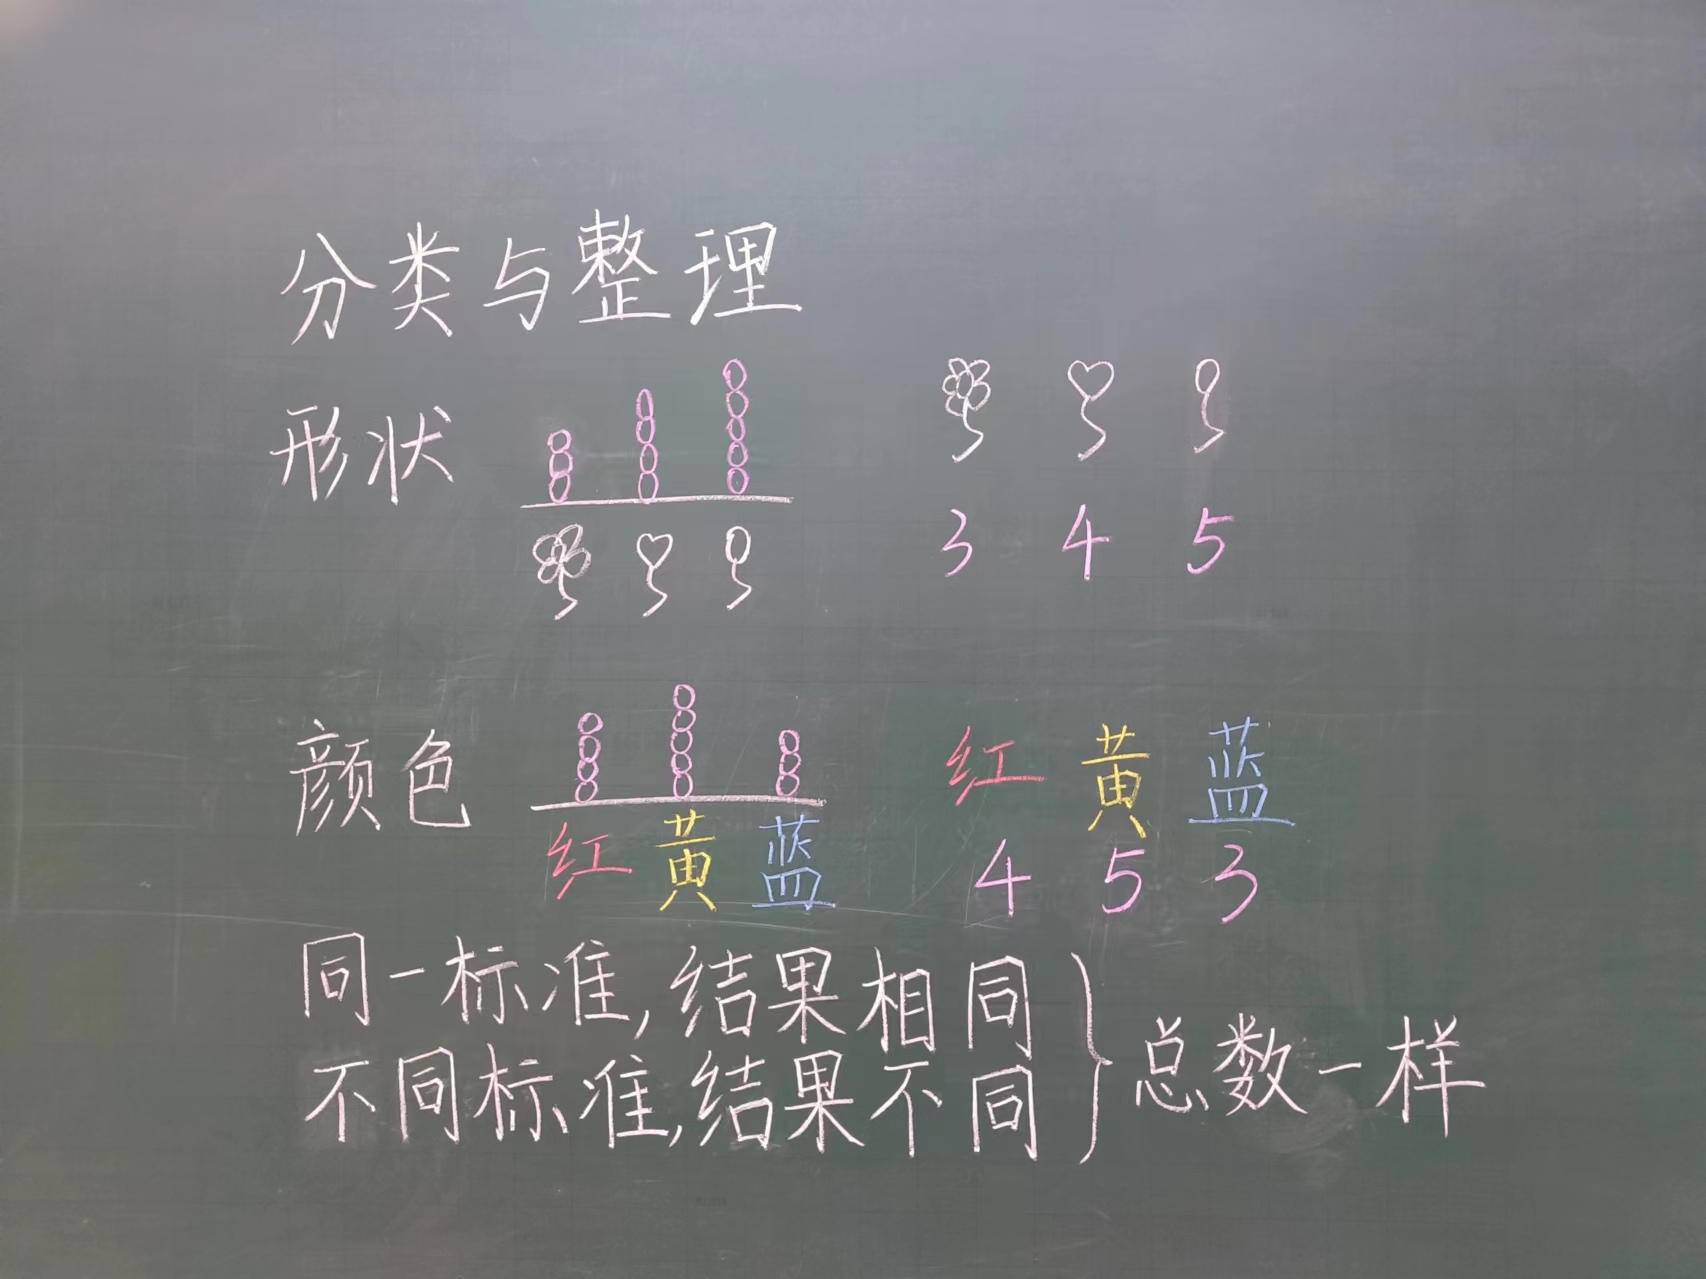 分类与整理
形状
3 4 5
颜色
红 黄 蓝
红 黄 蓝
4 5 3
同一标准,结果相同
不同标准,结果不同
总数一样